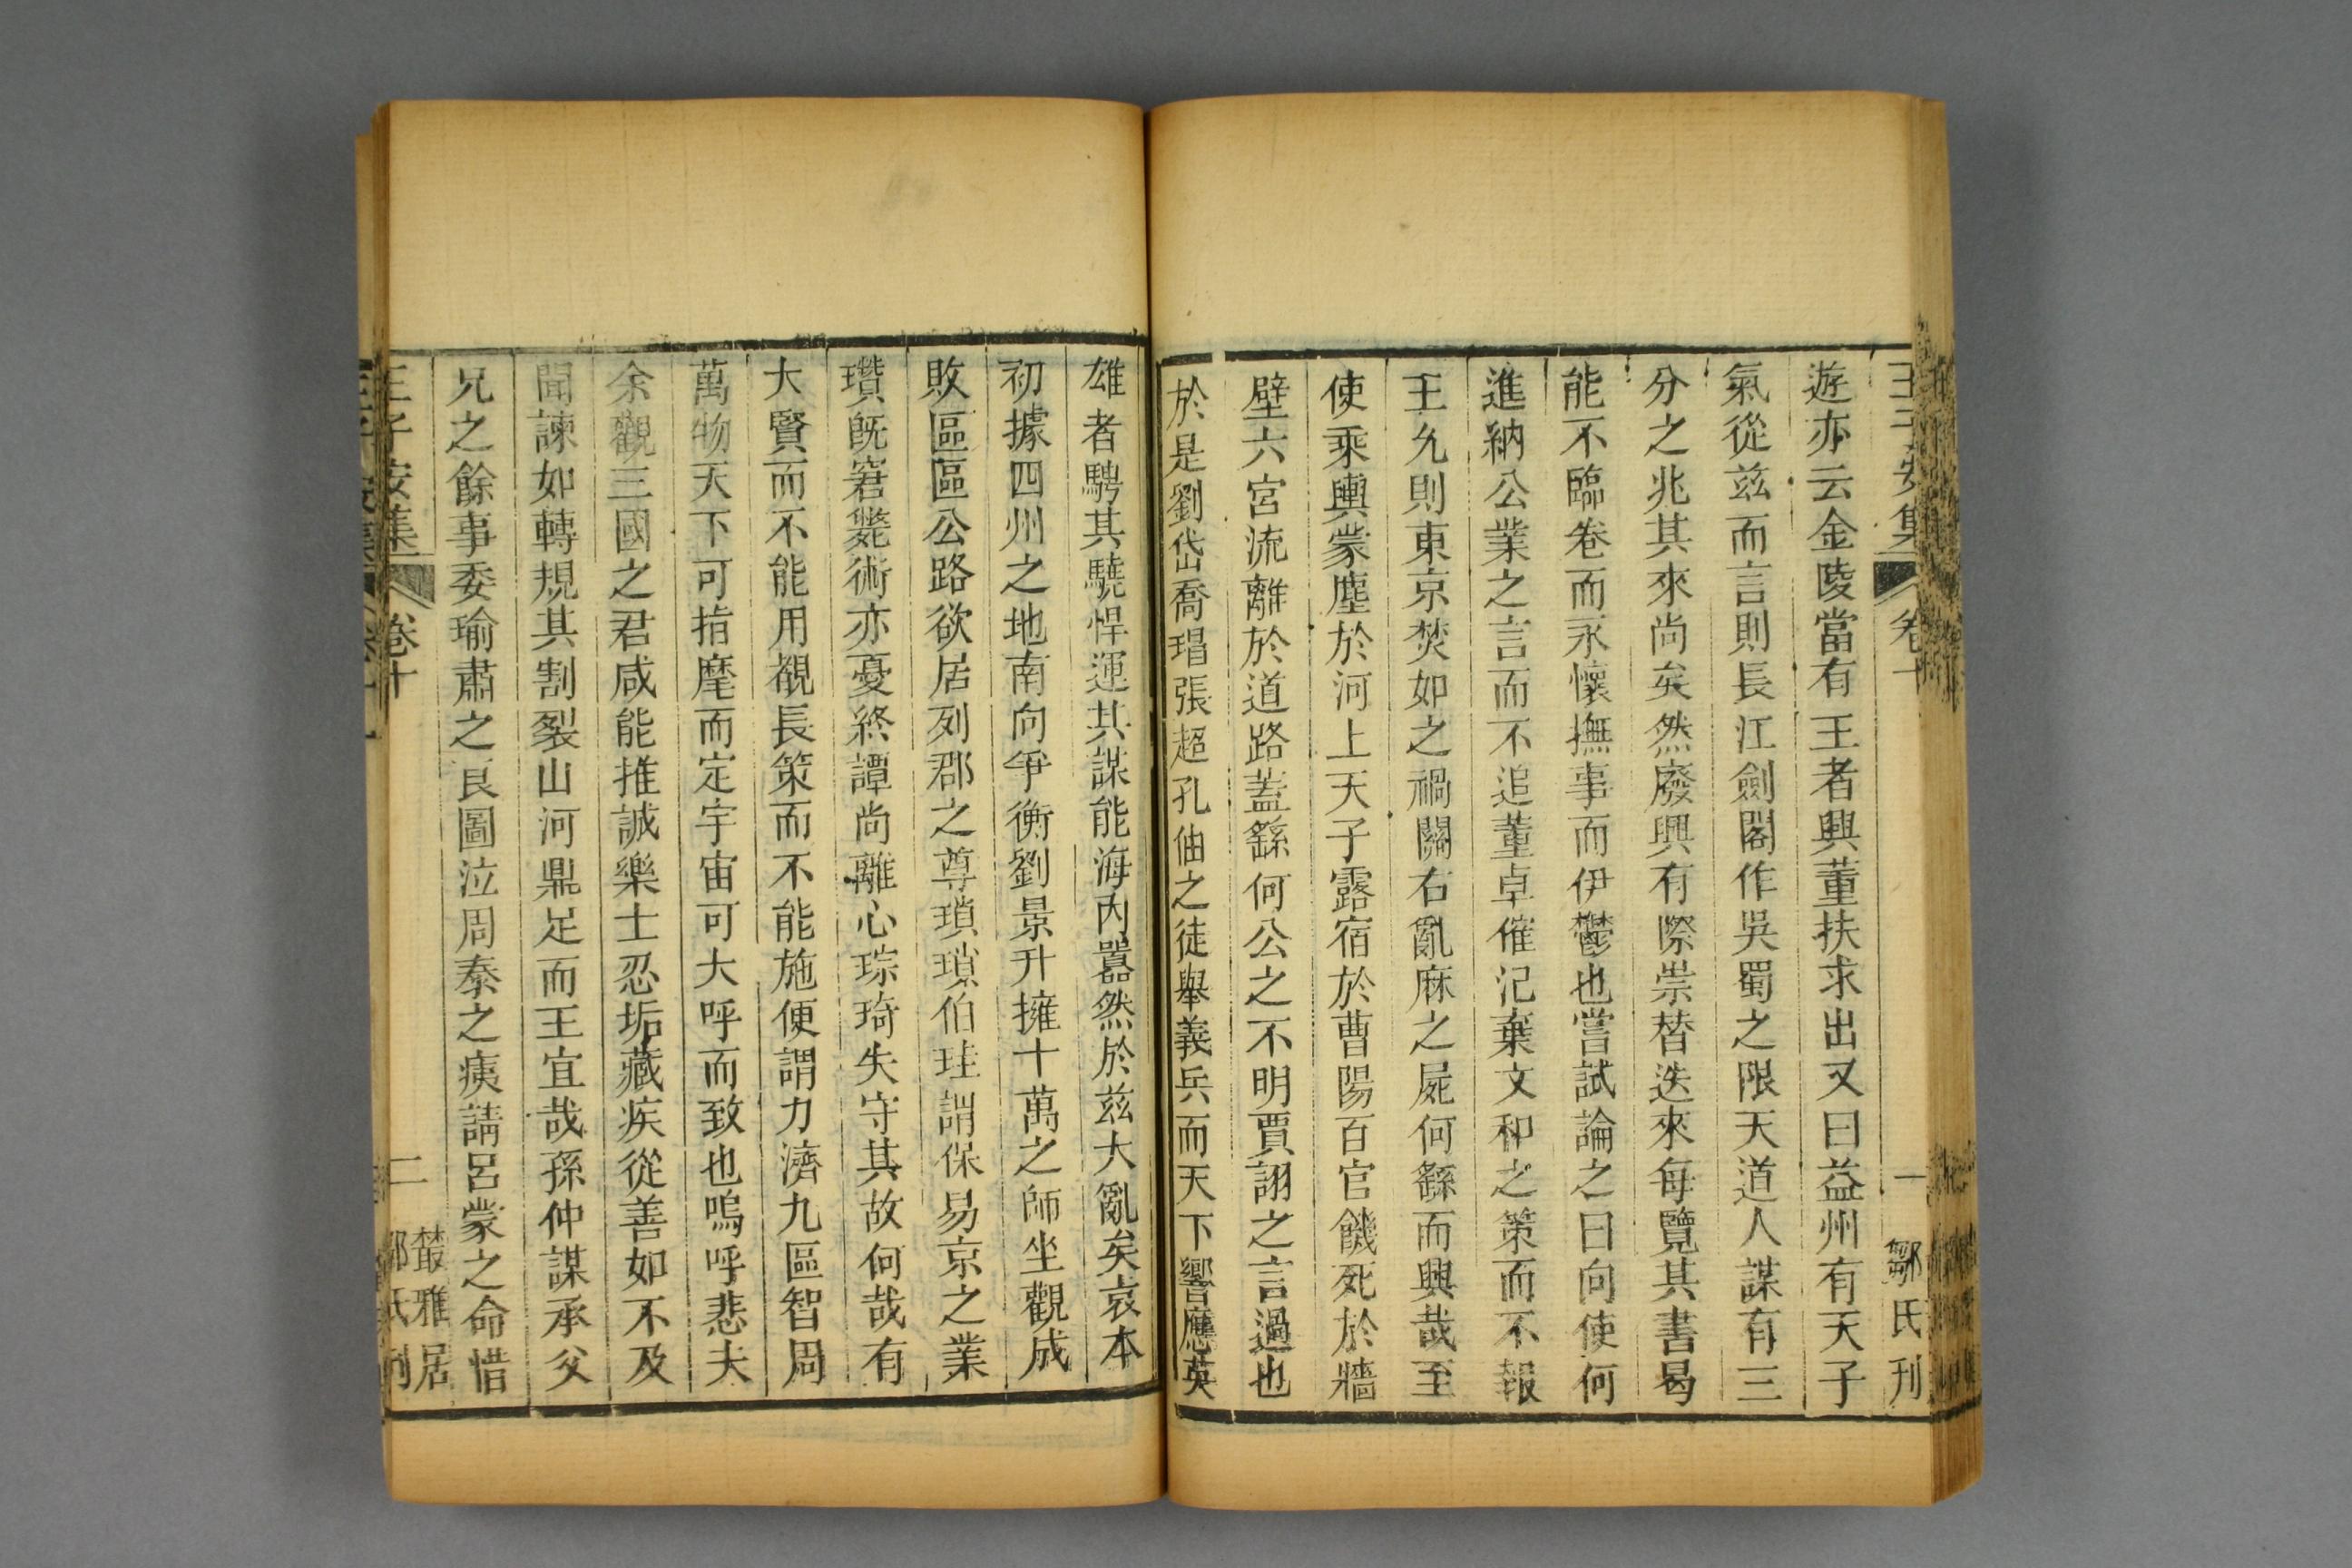 王子安集 卷十 一 鄒氏刊
遊亦云金陵當有王者興董扶求出又曰益州有天子
氣從茲而言則長江劍閣作吳蜀之限天道人謀有三
分之兆其來尚矣然廢興有際崇替迭來每覽其書曷
能不臨卷而永懷撫事而伊鬱也嘗試論之曰向使何
進納公業之言而不追董卓催汜棄文和之策而不報
王允則東京焚如之禍關右亂麻之屍何繇而興哉至
使乘輿蒙塵於河上天子露宿於曹陽百官饑死於牆
壁六宮流離於道路蓋繇何公之不明賈詡之言過也
於是劉岱喬瑁張超孔伷之徒舉義兵而天下響應英
雄者騁其驍悍運其謀能海內囂然於茲大亂矣袁本
初據四州之地南向爭衡劉景升擁十萬之師坐觀成
敗區區公路欲居列郡之尊瑣瑣伯珪謂保易京之業
瓚既窘斃術亦憂終譚尚離心琮琦失守其故何哉有
大賢而不能用覩長策而不能施便謂力濟九區智周
萬物天下可指麾而定宇宙可大呼而致也嗚呼悲夫
余觀三國之君咸能推誠樂士忍垢藏疾從善如不及
聞諫如轉規其割裂山河鼎足而王宜哉孫仲謀承父
兄之餘事委瑜肅之良圖泣周泰之痍請呂蒙之命惜
王子安集 卷十 二 叢雅居 鄒氏刊